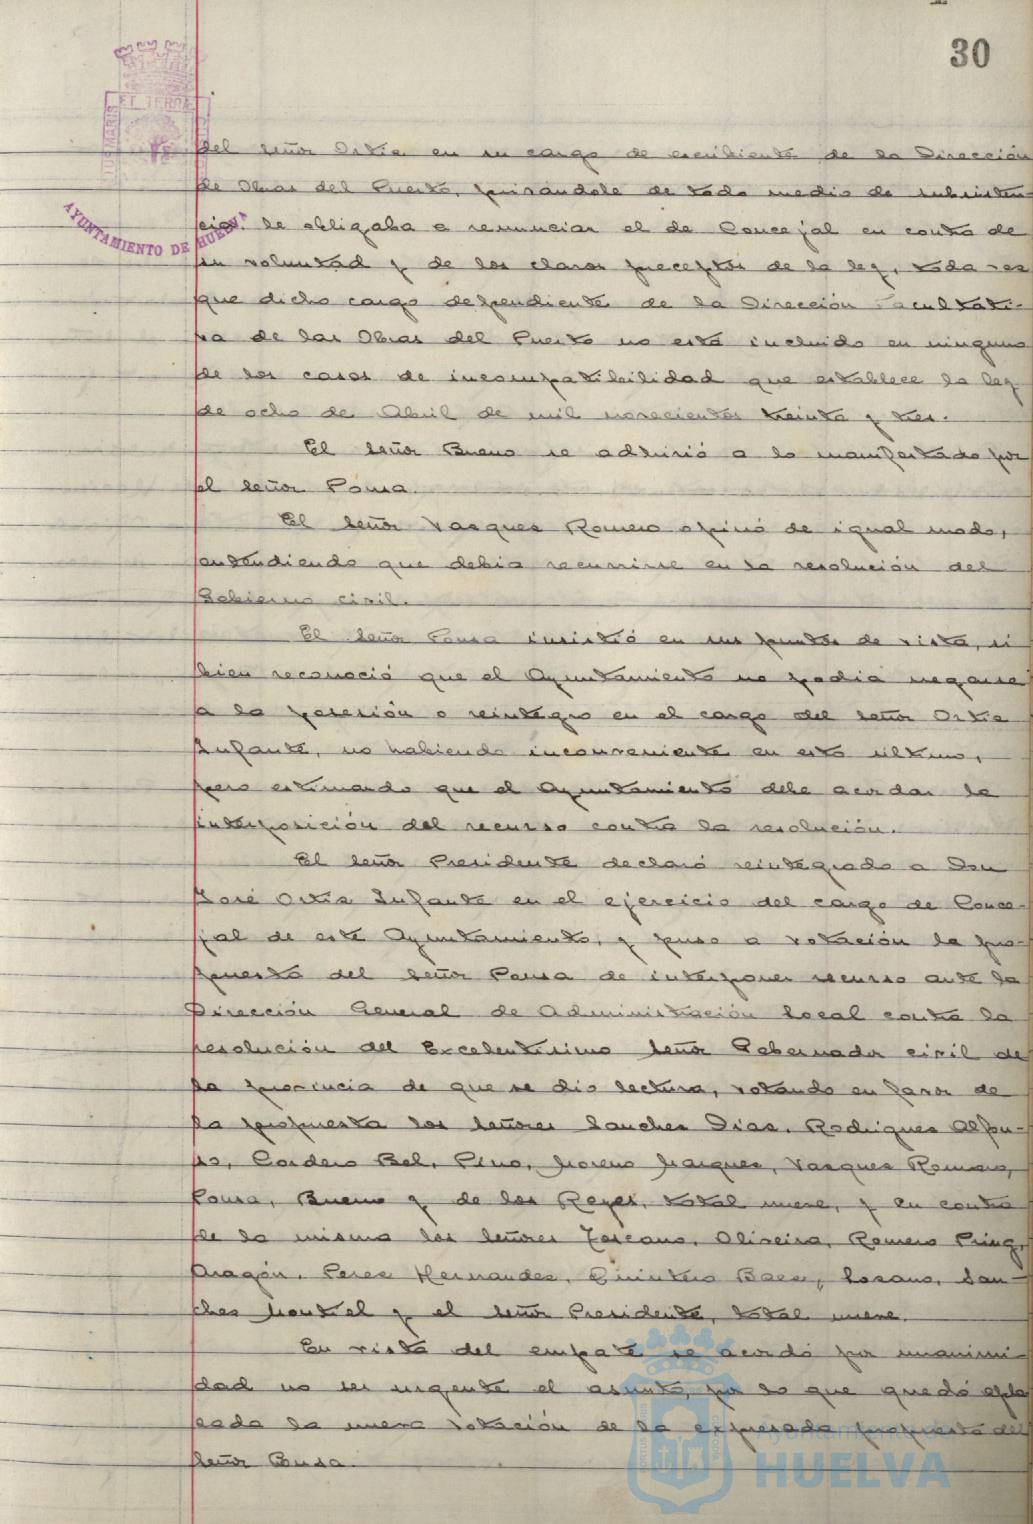 30
AYUNTAMIENTO DE HUELVA
del señor Ortiz en su cargo de escribiente de la Dirección
de Obras del Puerto, privándole de todo medio de subsisten-
cia, le obligaba a renunciar el de Concejal en contra de
su voluntad y de los claros preceptos de la ley, toda vez
que dicho cargo dependiente de la Dirección Facultati-
va de las Obras del Puerto no está incluido en ninguno
de los casos de incompatibilidad que establece la ley
de ocho de Abril de mil novecientos treinta y tres.
El señor Bueno se adhirió a lo manifestado por
el señor Ponsa.
El señor Vazquez Romero opinó de igual modo,
entendiendo que debía recurrirse en la resolución del
Gobierno civil.
El señor Ponsa insistió en sus puntos de vista, si
bien reconoció que el Ayuntamiento no podía negarse
a la posesión o reintegro en el cargo del señor Ortiz
Infante, no habiendo inconveniente en esto último,
pero estimando que el Ayuntamiento debe acordar la
interposición del recurso contra la resolución.
El señor Presidente declaró reintegrado a Don
José Ortiz Infante en el ejercicio del cargo de Conce-
jal de este Ayuntamiento, y puso a votación la pro-
puesta del señor Ponsa de interponer recurso ante la
Dirección General de Administración Local contra la
resolución del Excelentísimo señor Gobernador civil de
la provincia de que se dio lectura, votando en favor de
la propuesta los señores Sanchez Diaz, Rodriguez Alfon-
so, Cordero Bel, Pino, Moreno Marquez, Vazquez Romero,
Ponsa, Bueno y de los Reyes, total nueve, y en contra
de la misma los señores Toscano, Oliveira, Romero
Aragón, Perez Hernandez, Quintero Baez, Lozano, San-
chez Montiel y el señor Presidente, total nueve.
En vista del empate se acordó por unanimi-
dad no ser urgente el asunto, por lo que quedó apla
zada la nueva votación de la expresada propuesta del
señor Ponsa.
Ayuntamiento
HUELVA